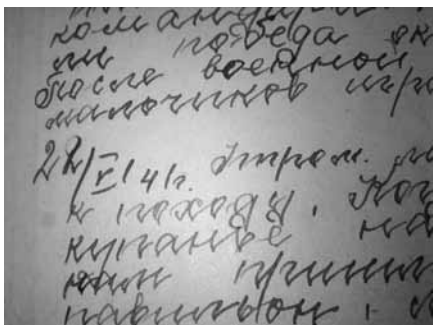 командиром
ли победа ок
После военной
мальчиков игра
22/V/41г. Утром
к походу. Ког
купанье на
нам пришл
павильон.